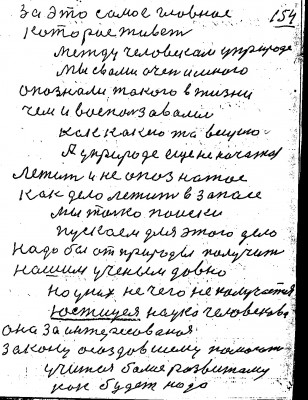 154
за это самое главное
которое живет
между человеком и природе
мы свами очен много
опознали такого в жизни
чем и воспользавали
как какою та вещию
А у природе еще не початой
лежит и не опознатое
как дело лежит в запасе
мы толко поиски
пускаем для этого дело
надо бы от природы получит
нашим ученым давно
но у них не чего не получается
юстицея наука человекова
она заинтересованоя
закону создавшему помогат
учится более развитаму
как будет надо